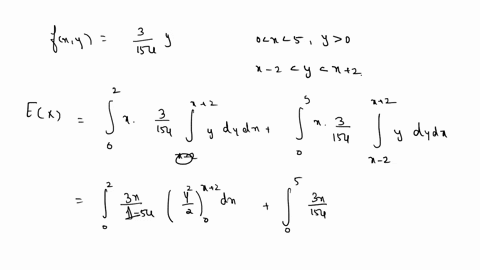 f(x,y) = 3/154 y    0<x<5, y>0
x-2 < y < x+2.
E(x) = ∫_0^2 x. 3/154 ∫^{x+2} y dy dx + ∫_0^5 x. 3/154 ∫_{x-2}^{x+2} y dy dx
= ∫_0^2 3x/154 (y²/2)_0^{x+2} dx + ∫_0^5 3x/154